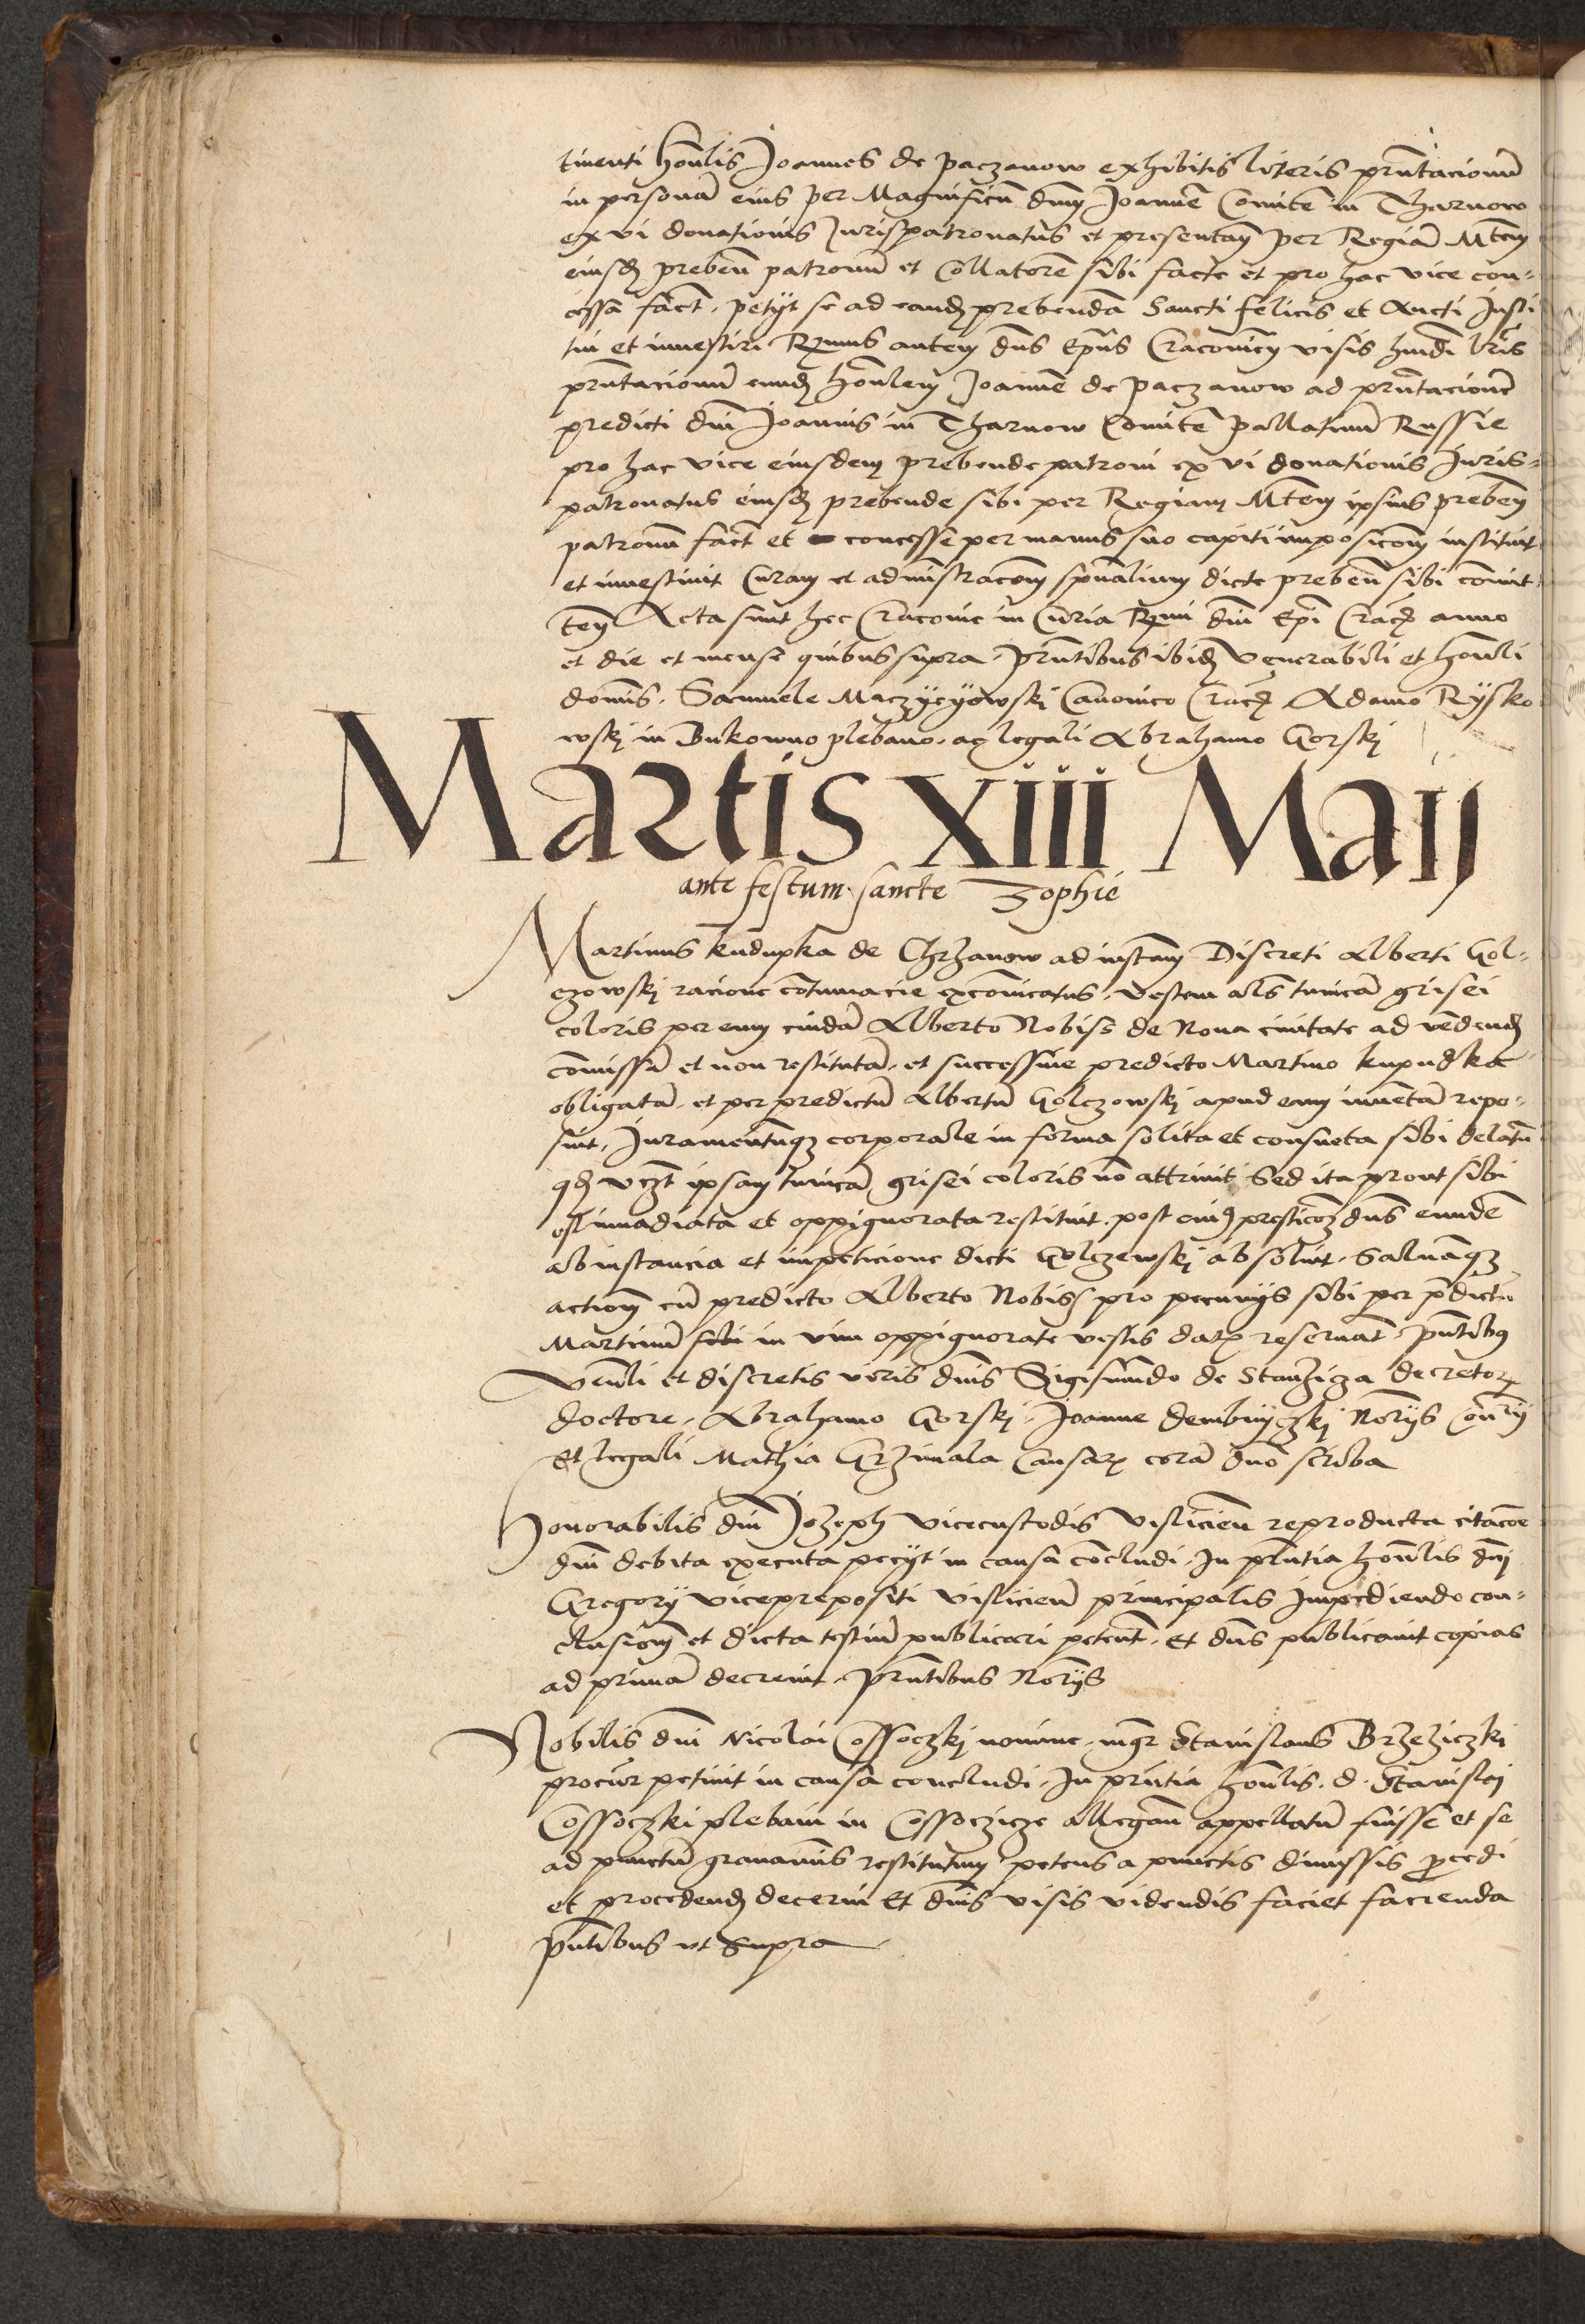 tinenti honlis Joannes de paczanow exhibitis literis prntacionu
in persona eius per Magnificu dnm Joanne Comite in Tharnow
ex vi donationis Jurispatronatus et presentan per Regia Mtem
eiusd preben patronu et Collatore sibi facte et pro hac vice con-
cessa fact, petyt se ad eand prebenda Sancti felicis et Aucti Insti
tui et inuestiri Rmus autem dns Epus Cracovien visis hmdi lris
prntacionu eund honlem Joanne de paczanow ad prntacione
predicti dni Joannis in Tharnow Comite pallatinu Russie
pro hac vice eiusdem prebende patroni ex vi donationis Juris-
patronatus eiusd prebende sibi per Regiam Mtem ipsius preben
patronu fact et concesse per manus suo capiti imposicom instituit
et inuestiuit Curam et administracom spualium dicte preben sibi comit-
ten Acta sunt hec Cracouie in Curia Rmi dni Epi Crac anno
et die et mense quibus supra, prntibus ibid Venerabili et honli
domis, Samuele Maczyeyowskj Canonico Crac Adamo Rysko
wskj in Bukowno plebano, ac legali Abrahamo Gorskj
Martis xiii Maij
ante festum sancte Zophie
Martinus kudupka de Chrzanow ad instam Discreti Alberti Gol-
czowskj racione contumacie excomicatus, vestem als tunica grisei
coloris per eum cuida Alberto Nobiss de Noua ciuitate ad vendend
comissa et non restituta, et successiue predicto Martino kupudka
obligata, et per predictu Albertu Golczowskj apud eum inuenta repo-
suit, Juramentumqz corporale in forma solita et consueta sibi delatu
qd vczt ipsam tunica grisei coloris no attriuit Sed ita prout sibi
est inuadiata et oppignorata restituit, post cuius presticoz dns eunde
ab instancia et impeticione dicti Golczewskj absoluit, Saluaqz
action cu predicto Alberto Nobiss pro pecunijs sibi per pdictu
Martinu sibi in vim oppignorate vestis dat reseruat, pntibus
Venli et discretis viris dnis Sigismundo de Stanzicza decretor
doctore, Abrahamo Gorskj, Joanne dembinyczkj Norijs
Et legali Mathia Grzimala Causar cora dno scriba
Honorabilis dni Jozeph vicecustodis Vislicien reproducta citacoe
dni debita executa pecyt in causa concludi, In prntia honlis dnj
Gregorij viceprepositi vislicien principalis Impediendo con-
clusiom et dicta testiu publicari petent, Et dns publicauit copias
ad prima decreuit, prntibus Norijs
Nobilis dni Nicolai Cossoczkj nomine, mgr Stanislaus Brzezickj
procur petiuit in causa concludi, In prntia honlis, d. Stanislaj
Cossoczki plebani in Cossoczicze allegan appellatu fuisse et se
ad punctu grauaminis restitutum petens a punctis dimissis procedi
et procedend decerni Et dnus visis videndis faciet facienda
pntibus ut supra